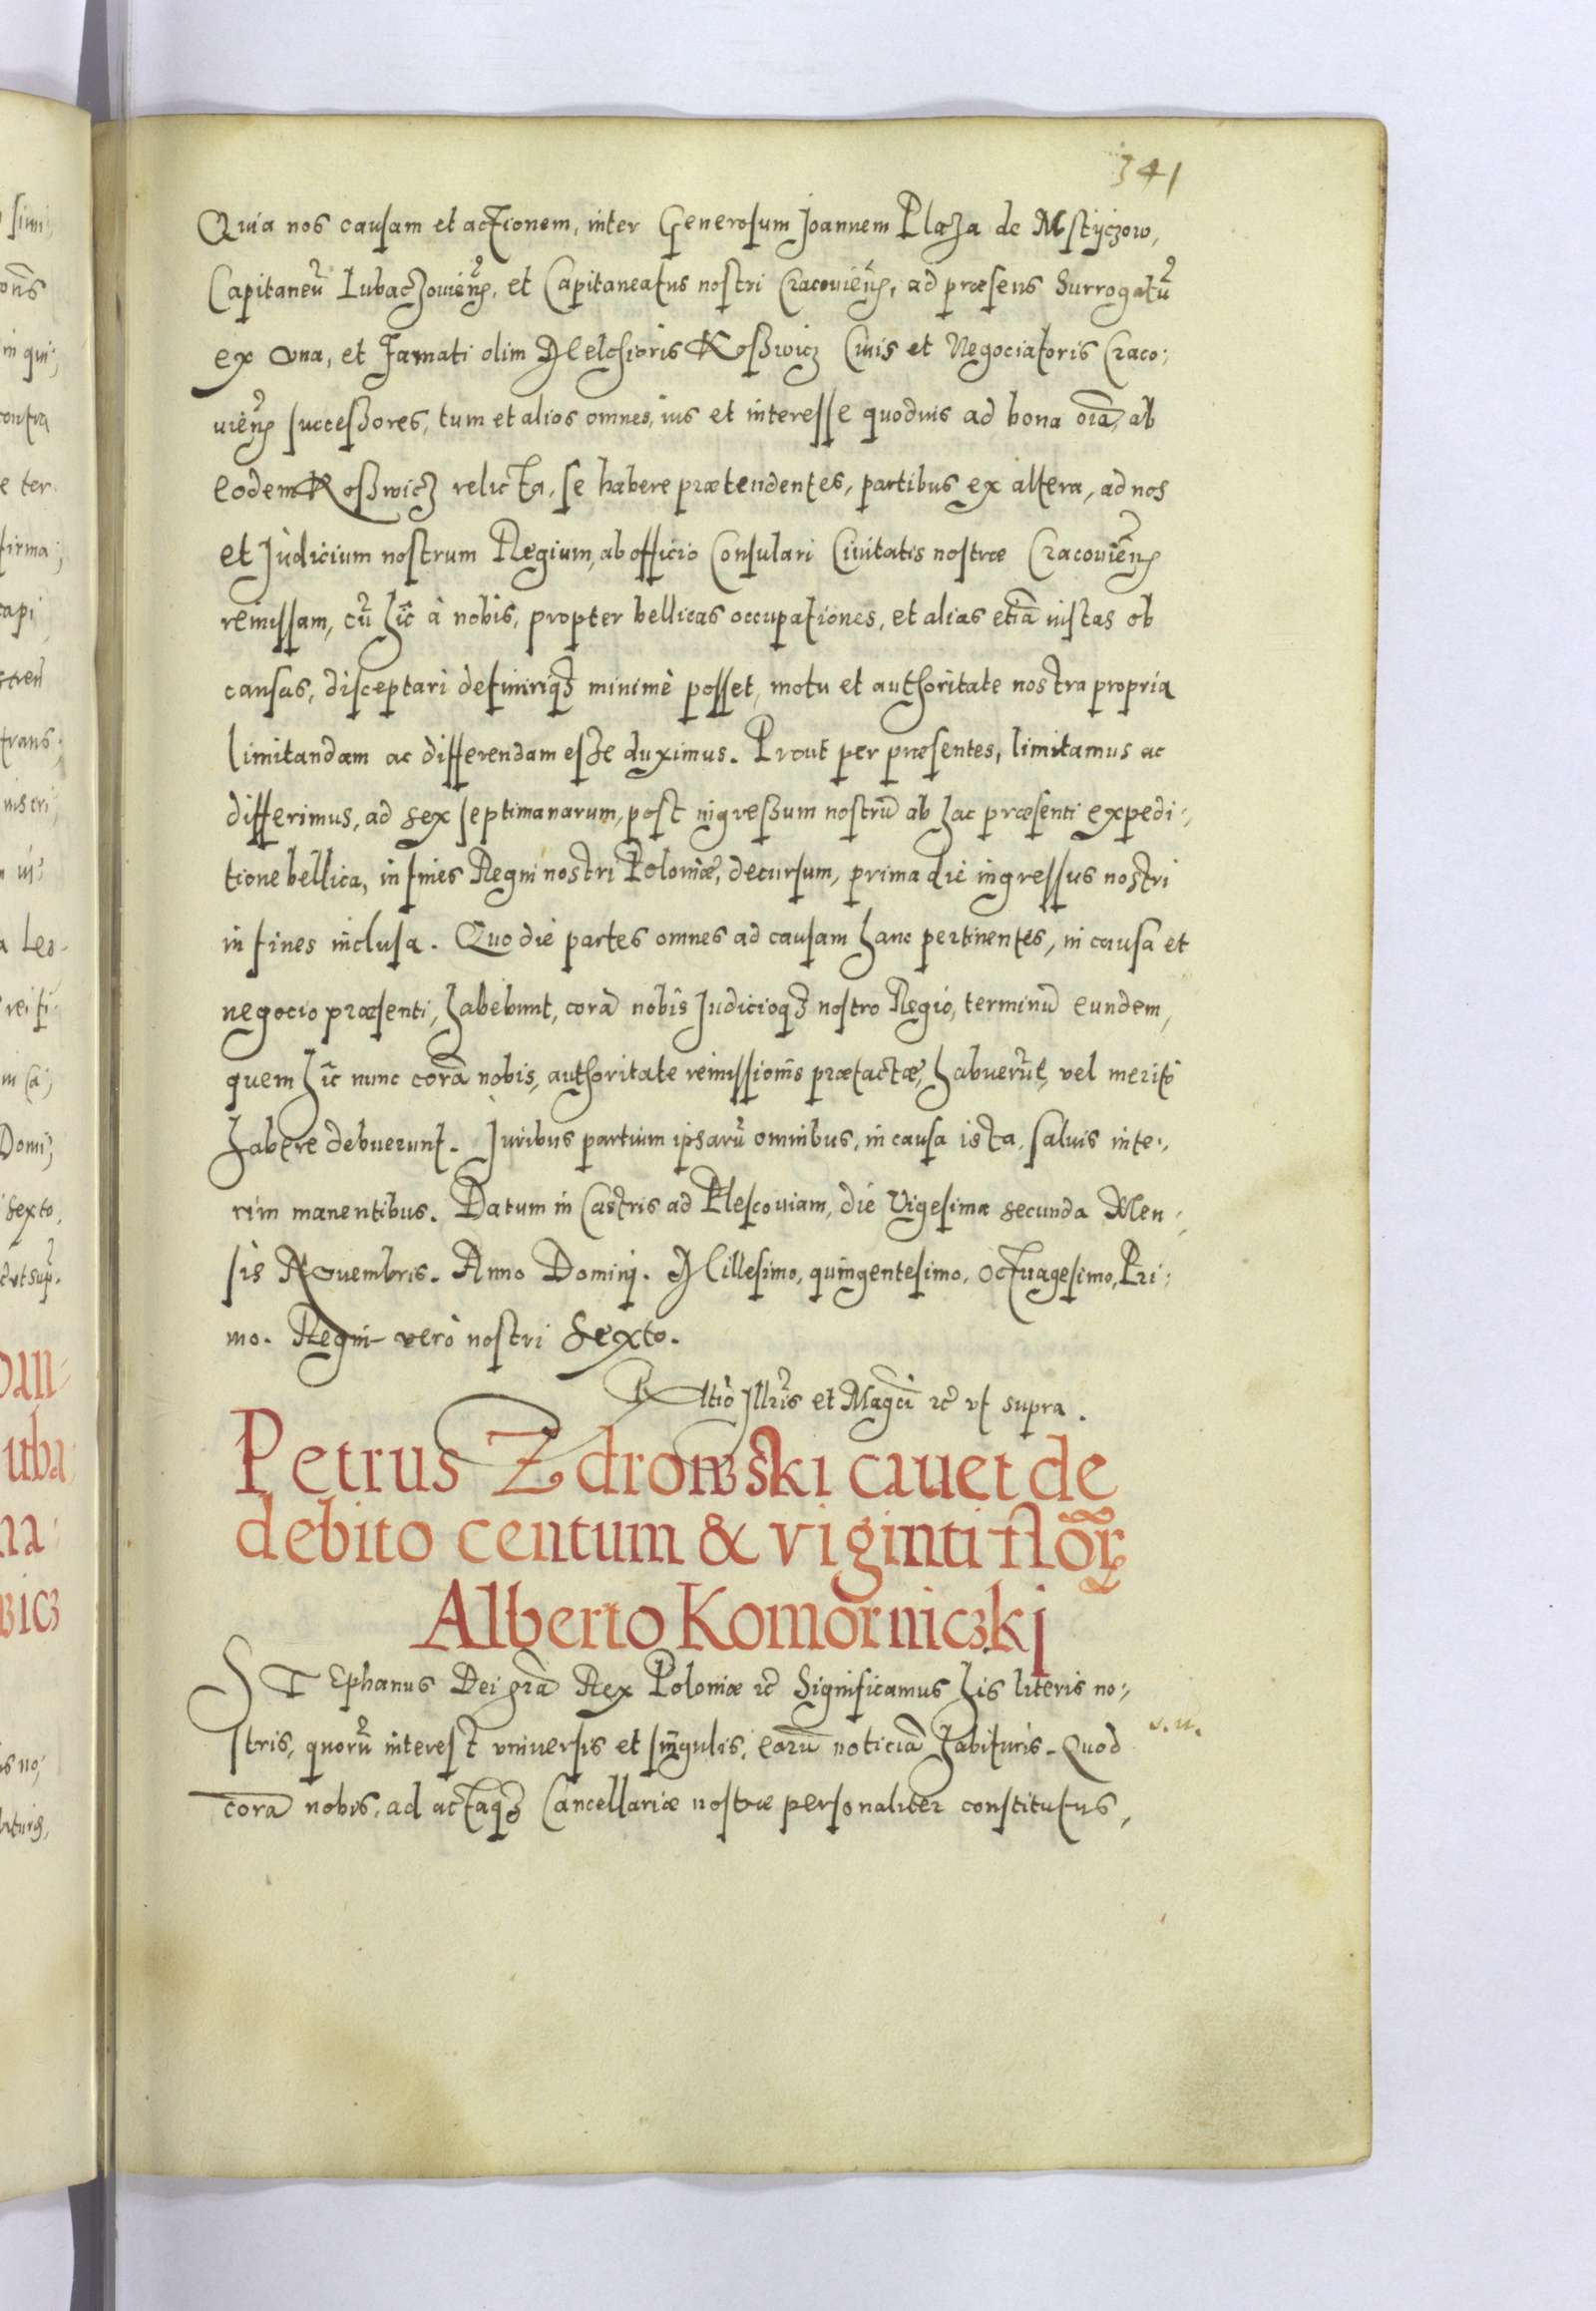 341
Quia nos causam et actionem, inter Generosum Joannem Plaza de Mstijczow,
Capitaneũ Lubaczouieñ, et Capitaneatus nostri Cracouieñ, ad præsens Surrogatũ
ex vna, et Famati olim Melchioris Koszwicz Ciuis et Negociatoris Craco:
uieñ successores, tum et alios omnes, ius et interesse quoduis ad bona oĩa, ab
eodem Koszwicz relicta, se habere prætendentes, partibus ex altera, ad nos
et Judicium nostrum Regium, ab officio Consulari Ciuitatis nostræ Cracouieñ
remissam, cũ hĩc à nobis, propter bellicas occupationes, et alias etiã iustas ob
causas, disceptari definiriqʒ minimè posset, motu et authoritate nostra propria
limitandam ac differendam esse duximus. Prout per præsentes, limitamus ac
differimus, ad sex septimanarum, post ingressum nostrũ ab hac præsenti expedi:,
tione bellica, in fines Regni nostri Poloniæ, decursum, prima die ingressus nostri
in fines inclusa. Quo die partes omnes ad causam hanc pertinentes, in causa et
negocio præsenti, habebunt, corã nobis Judicioqʒ nostro Regio, terminũ eundem,
quem hĩc nunc corã nobis, authoritate remissionis prætactæ, habuerũt, vel meritò
habere debuerunt. Juribus partium ipsarũ omnibus, in causa ista, saluis inte:,
rim manentibus. Datum in Castris ad Plescouiam, die Vigesima secunda Men:,
sis Nouembris. Anno Domini. Millesimo, quingentesimo, Octuagesimo, Pri:
mo. Regni vero nostri Sexto.
Rtio Illris et Magci ꝛc̃ vt supra.
Petrus Zdrowski cauet de
debito centum & viginti flor
Alberto Komorniczkj
STEphanus Dei grã Rex Poloniæ ꝛc̃ Significamus his literis no:,
stris, quorũ interest vniuersis et singulis, earũ noticiã habituris. Quod
corã nobis, ad actaqʒ Cancellariæ nostræ personaliter constitutus,